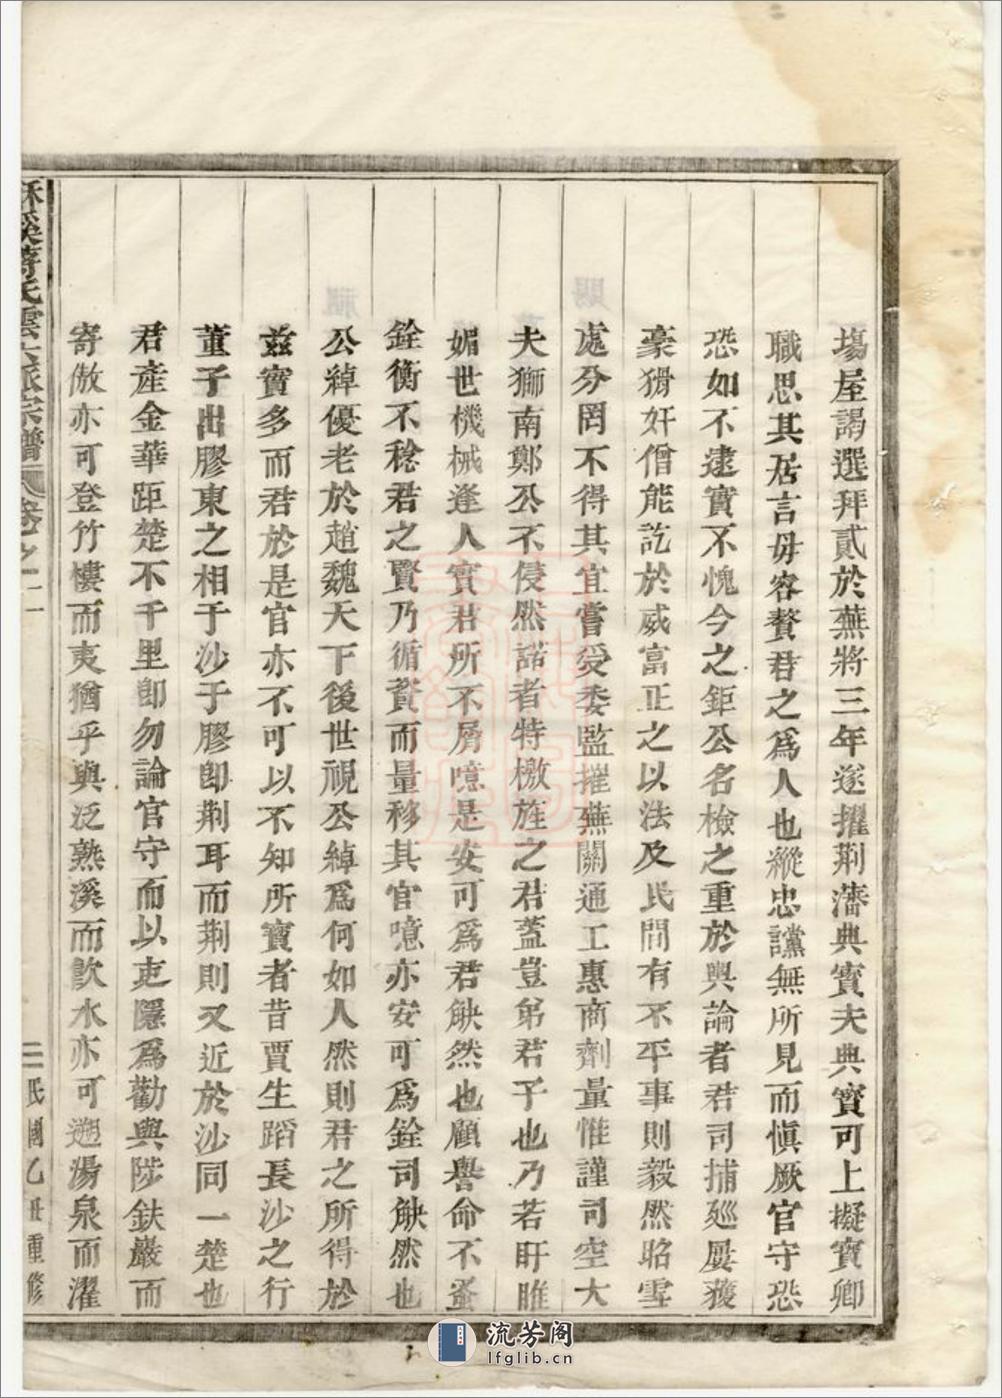 塲屋謁選拜貳於蕪將三年遂擢荆藩典寳夫典寳可上擬寳卿
職思其居言毋容贅君之爲人也縱忠讜無所見而愼厥官守恐
恐如不逮實不愧今之鉅公名檢之重於輿論者君司捕廵屢獲
豪猾奸僧能訖於威富正之以法及民間有不平事則毅然昭雪
處分罔不得其宜嘗受委監搉蕪關通工惠商劑量惟謹司空大
夫獅南鄭公不侵然諾者特檄旌之君蓋豈弟君子也乃若盱睢
媚世機械逢人實君所不屑噫是安可爲君觖然也顧譽命不蚤
銓衡不稔君之賢乃循資而量移其官噫亦安可爲銓司觖然也
公綽優老於趙魏天下後世視公綽爲何如人然則君之所得於
兹寳多而君於是官亦不可以不知所寳者昔賈生蹈長沙之行
董子出膠東之相于沙于膠卽荆耳而荆則又近於沙同一楚也
君產金華距楚不千里卽勿論官守而以吏隱爲勸與陟鈇巖而
寄傲亦可登竹樓而夷猶乎與泛熟溪而飲水亦可遡湯泉而濯
溪蔣氏雲 派宗譜 卷之二 二 民國乙丑重修
賜
流芳阁
lfglib.cn